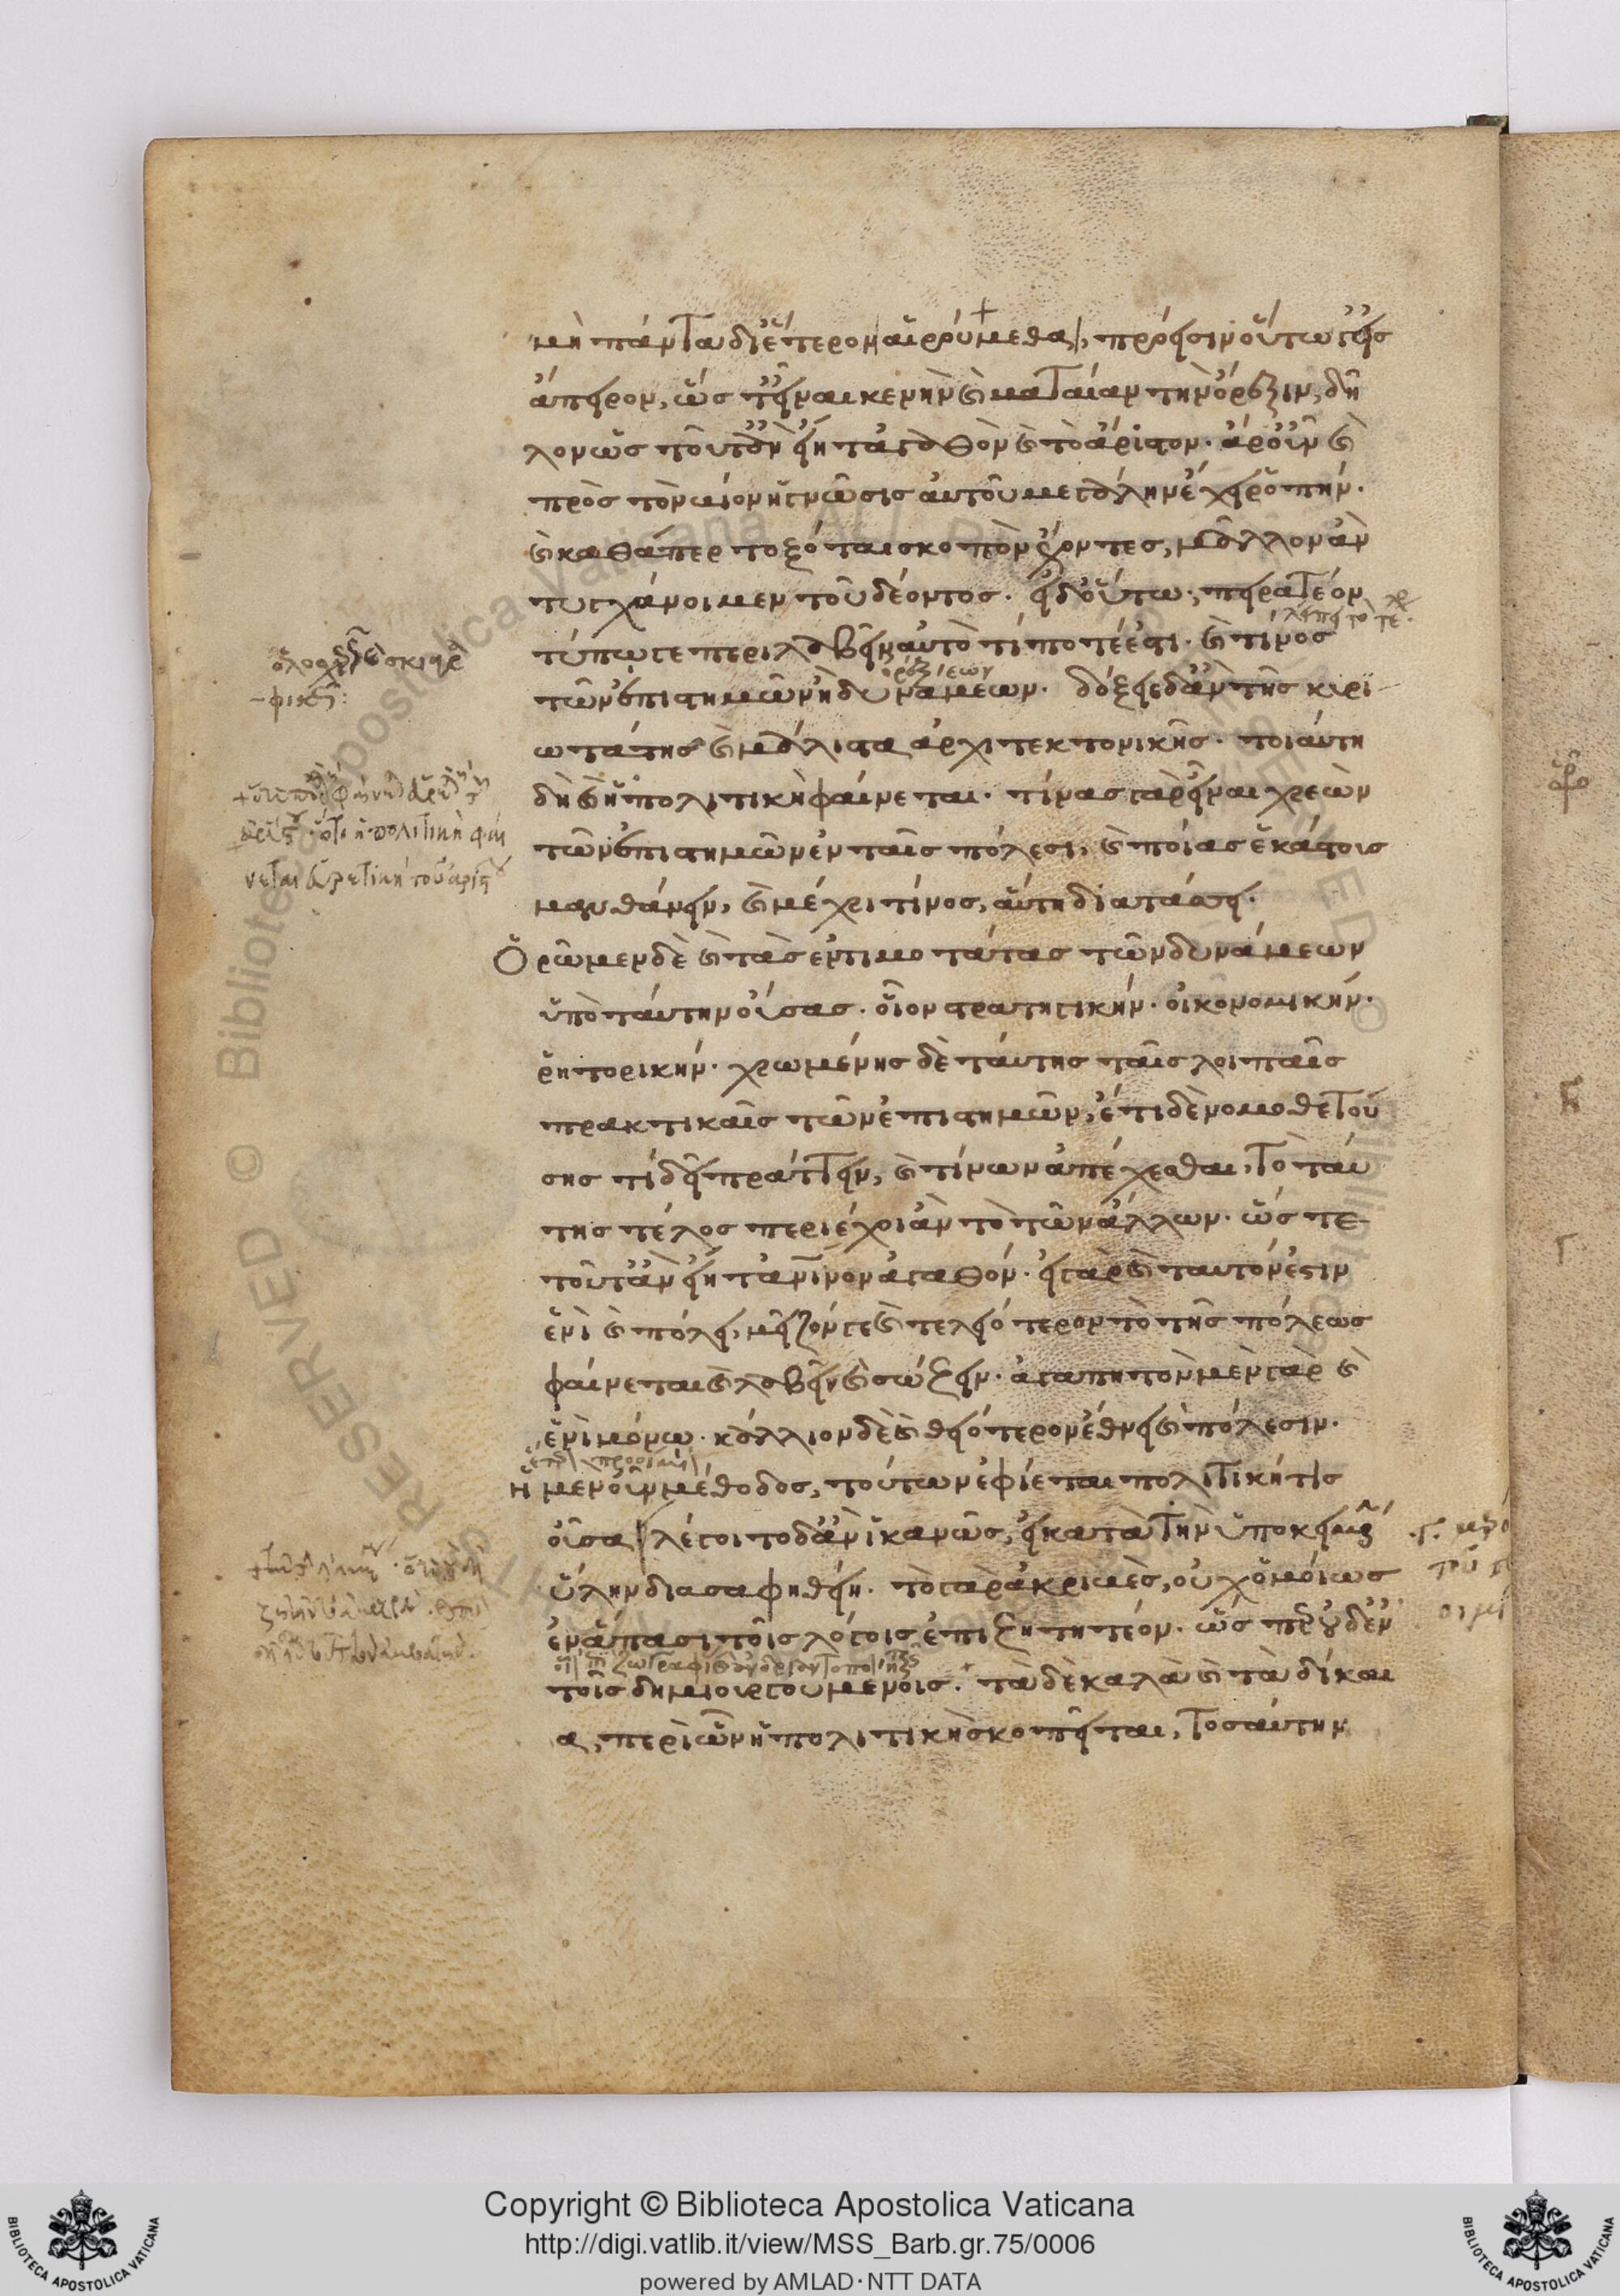 μὴ πάντα δι' ἕτερον αἱρούμεθα, πρόεισιν οὕτω γ' εἰς
ἄπειρον, ὥστ' εἶναι κενὴν καὶ ματαίαν τὴν ὄρεξιν, δῆ
λον ὡς τοῦτ' ἂν εἴη τἀγαθὸν καὶ τὸ ἄριστον. ἆρ' οὖν καὶ
πρὸς τὸν βίον ἡ γνῶσις αὐτοῦ μεγάλην ἔχει ῥοπήν.
καὶ καθάπερ τοξόται σκοπὸν ἔχοντες, μᾶλλον ἂν
τυγχάνοιμεν τοῦ δέοντος. εἰ δ' οὕτω, πειρατέον
τύπῳ γε περιλαβεῖν αὐτὸ τί ποτέ ἐστι. καὶ τίνος
τῶν ἐπιστημῶν ἢ δυνάμεων. δόξειε δ' ἂν τῆς κυρι
ωτάτης καὶ μάλιστα ἀρχιτεκτονικῆς. τοιαύτη
δὴ καὶ ἡ πολιτικὴ φαίνεται. τίνας γὰρ εἶναι χρεὼν
τῶν ἐπιστημῶν ἐν ταῖς πόλεσι, καὶ ποίας ἑκάστοις
μανθάνειν, καὶ μέχρι τίνος, αὕτη διατάσσει.
Ὁρῶμεν δὲ καὶ τὰς ἐντιμοτάτας τῶν δυνάμεων
ὑπὸ ταύτην οὔσας. οἷον στρατηγικήν. οἰκονομικήν.
ῥητορικήν. χρωμένης δὲ ταύτης ταῖς λοιπαῖς
πρακτικαῖς τῶν ἐπιστημῶν, ἔτι δὲ νομοθετού
σης τί δεῖ πράττειν, καὶ τίνων ἀπέχεσθαι, τὸ ταύ
της τέλος περιέχοι ἂν τὸ τῶν ἄλλων. ὥστε
τοῦτ' ἂν εἴη τἀνθρώπινον ἀγαθόν. εἰ γὰρ καὶ ταυτόν ἐστιν
ἑνὶ καὶ πόλει, μεῖζόν γε καὶ τελειότερον τὸ τῆς πόλεως
φαίνεται καὶ λαβεῖν καὶ σώζειν. ἀγαπητὸν μὲν γὰρ καὶ
ἑνὶ μόνῳ. κάλλιον δὲ καὶ θειότερον ἔθνει καὶ πόλεσιν.
Ἡ μὲν οὖν μέθοδος, τούτων ἐφίεται πολιτική τις
οὖσα λέγοιτο δ' ἂν ἱκανῶς, εἰ κατὰ τὴν ὑποκειμένην
ὕλην διασαφηθείη. τὸ γὰρ ἀκριβὲς, οὐχ ὁμοίως
ἐν ἅπασι τοῖς λόγοις ἐπιζητητέον. ὥσπερ οὐδ' ἐν
τοῖς δημιουργουμένοις. τὰ δὲ καλὰ καὶ τὰ δίκαι
α, περὶ ὧν ἡ πολιτικὴ σκοπεῖται, τοσαύτην
Copyright © Biblioteca Apostolica Vaticana
http://digi.vatlib.it/view/MSS_Barb.gr.75/0006
powered by AMLAD · NTT DATA
BIBLIOTECA APOSTOLICA VATICANA
BIBLIOTECA APOSTOLICA VATICANA